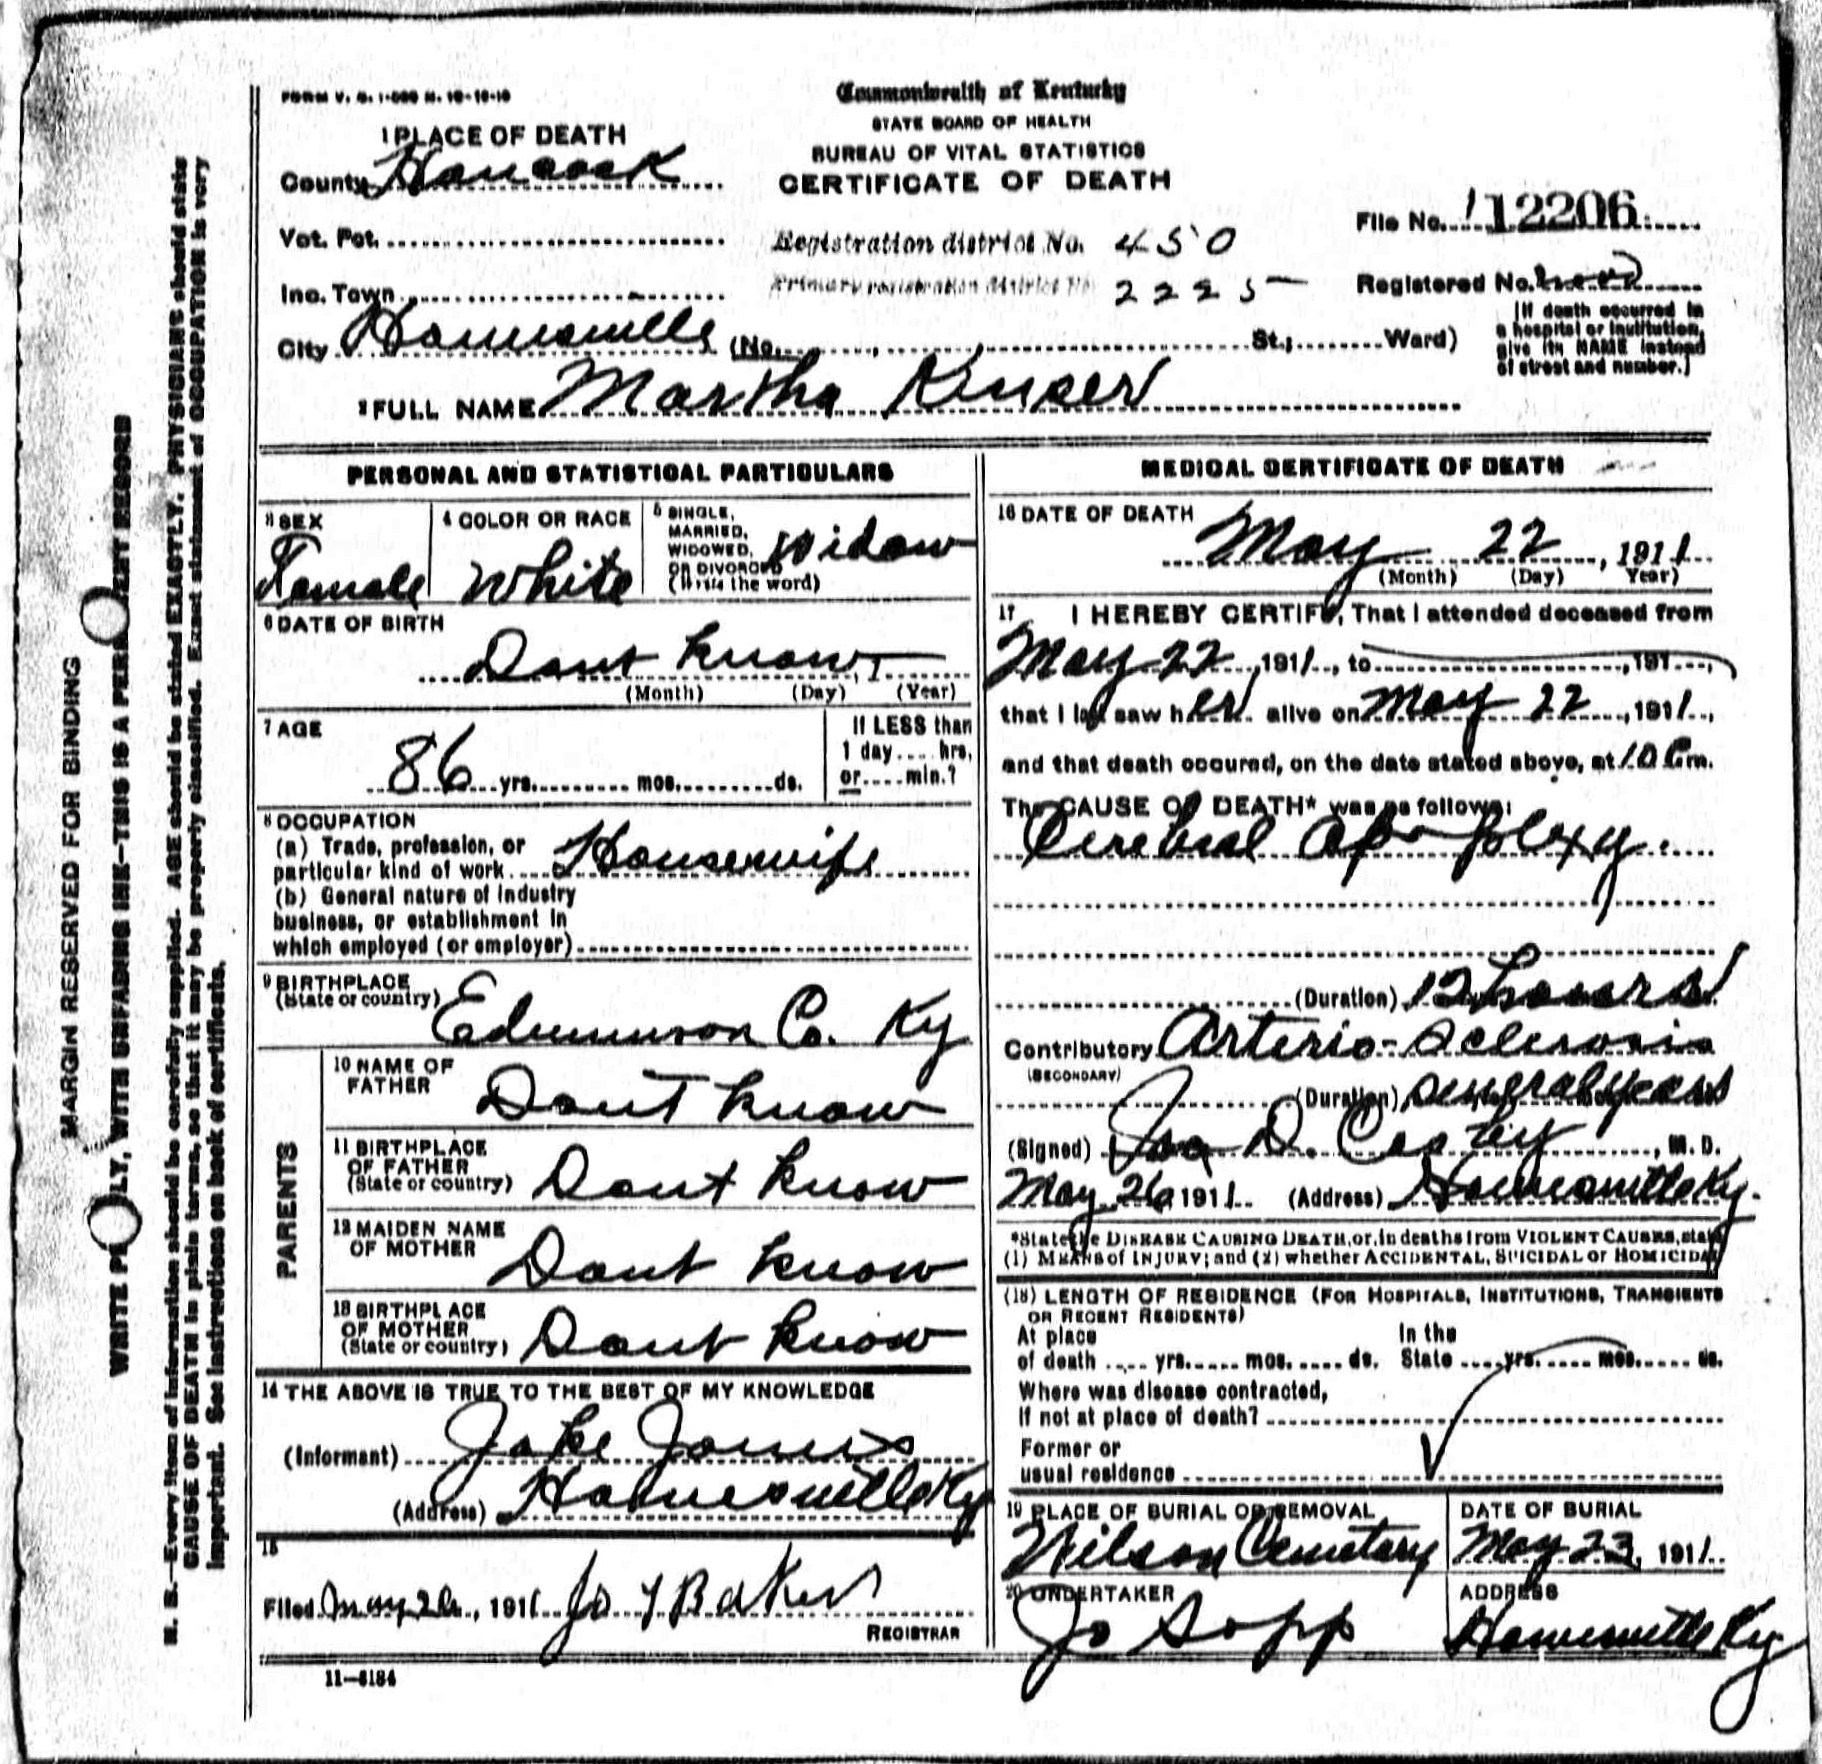 FORM V. S. 1-
Commonwealth of Kentucky
STATE BOARD OF HEALTH
BUREAU OF VITAL STATISTICS
CERTIFICATE OF DEATH
1 PLACE OF DEATH
County Hancock
Vot. Pct.
Inc. Town
City Hawesville (No. St.; Ward)
Registration district No. 450
Primary registration district No. 2225
File No. 12206
Registered No.
[If death occurred in
a hospital or institution,
give its NAME instead
of street and number.]
2 FULL NAME Martha Kinser
PERSONAL AND STATISTICAL PARTICULARS
3 SEX
Female
4 COLOR OR RACE
White
5 SINGLE,
MARRIED,
WIDOWED,
OR DIVORCED
(Write the word)
Widow
6 DATE OF BIRTH
Dont know
(Month) (Day) (Year)
7 AGE
86 yrs. mos. ds.
If LESS than
1 day.... hrs.
or.... min.?
8 OCCUPATION
(a) Trade, profession, or
particular kind of work Housewife
(b) General nature of industry
business, or establishment in
which employed (or employer)
9 BIRTHPLACE
(State or country)
Edmunson Co. Ky
PARENTS
10 NAME OF
FATHER
Dont know
11 BIRTHPLACE
OF FATHER
(State or country) Dont know
12 MAIDEN NAME
OF MOTHER
Dont know
13 BIRTHPLACE
OF MOTHER
(State or country) Dont know
14 THE ABOVE IS TRUE TO THE BEST OF MY KNOWLEDGE
(Informant) Jake
(Address) Hawesville Ky
15
Filed May 26, 1911 Jo T Baker
REGISTRAR
11-6184
MEDICAL CERTIFICATE OF DEATH
16 DATE OF DEATH
May 22, 1911
(Month) (Day) Year)
17 I HEREBY CERTIFY, That I attended deceased from
May 22, 1911, to , 191 ,
that I last saw her alive on May 22, 1911,
and that death occured, on the date stated above, at m.
The CAUSE OF DEATH* was as follows:
Cerebral Apoplexy.
(Duration) 12 hours
Contributory Arterio-sclerosis
(SECONDARY)
(Duration) several years
(Signed) D. , M. D.
May 26 1911 (Address) Hawesville Ky.
*State the DISEASE CAUSING DEATH, or, in deaths from VIOLENT CAUSES, state
(1) MEANS of INJURY; and (2) whether ACCIDENTAL, SUICIDAL or HOMICIDAL
(18) LENGTH OF RESIDENCE (FOR HOSPITALS, INSTITUTIONS, TRANSIENTS
OR RECENT RESIDENTS)
At place
of death yrs. mos. ds.
In the
State yrs. mos. ds.
Where was disease contracted,
If not at place of death?
Former or
usual residence
19 PLACE OF BURIAL OR REMOVAL
Wilson Cemetary
DATE OF BURIAL
May 23, 1911
20 UNDERTAKER
Jo Sopp
ADDRESS
Hawesville Ky
MARGIN RESERVED FOR BINDING
WRITE PLAINLY, WITH UNFADING INK—THIS IS A PERMANENT RECORD
N. B.—Every item of information should be carefully supplied. AGE should be stated EXACTLY. PHYSICIANS should state
CAUSE OF DEATH in plain terms, so that it may be properly classified. Exact statement of OCCUPATION is very
important. See instructions on back of certificate.